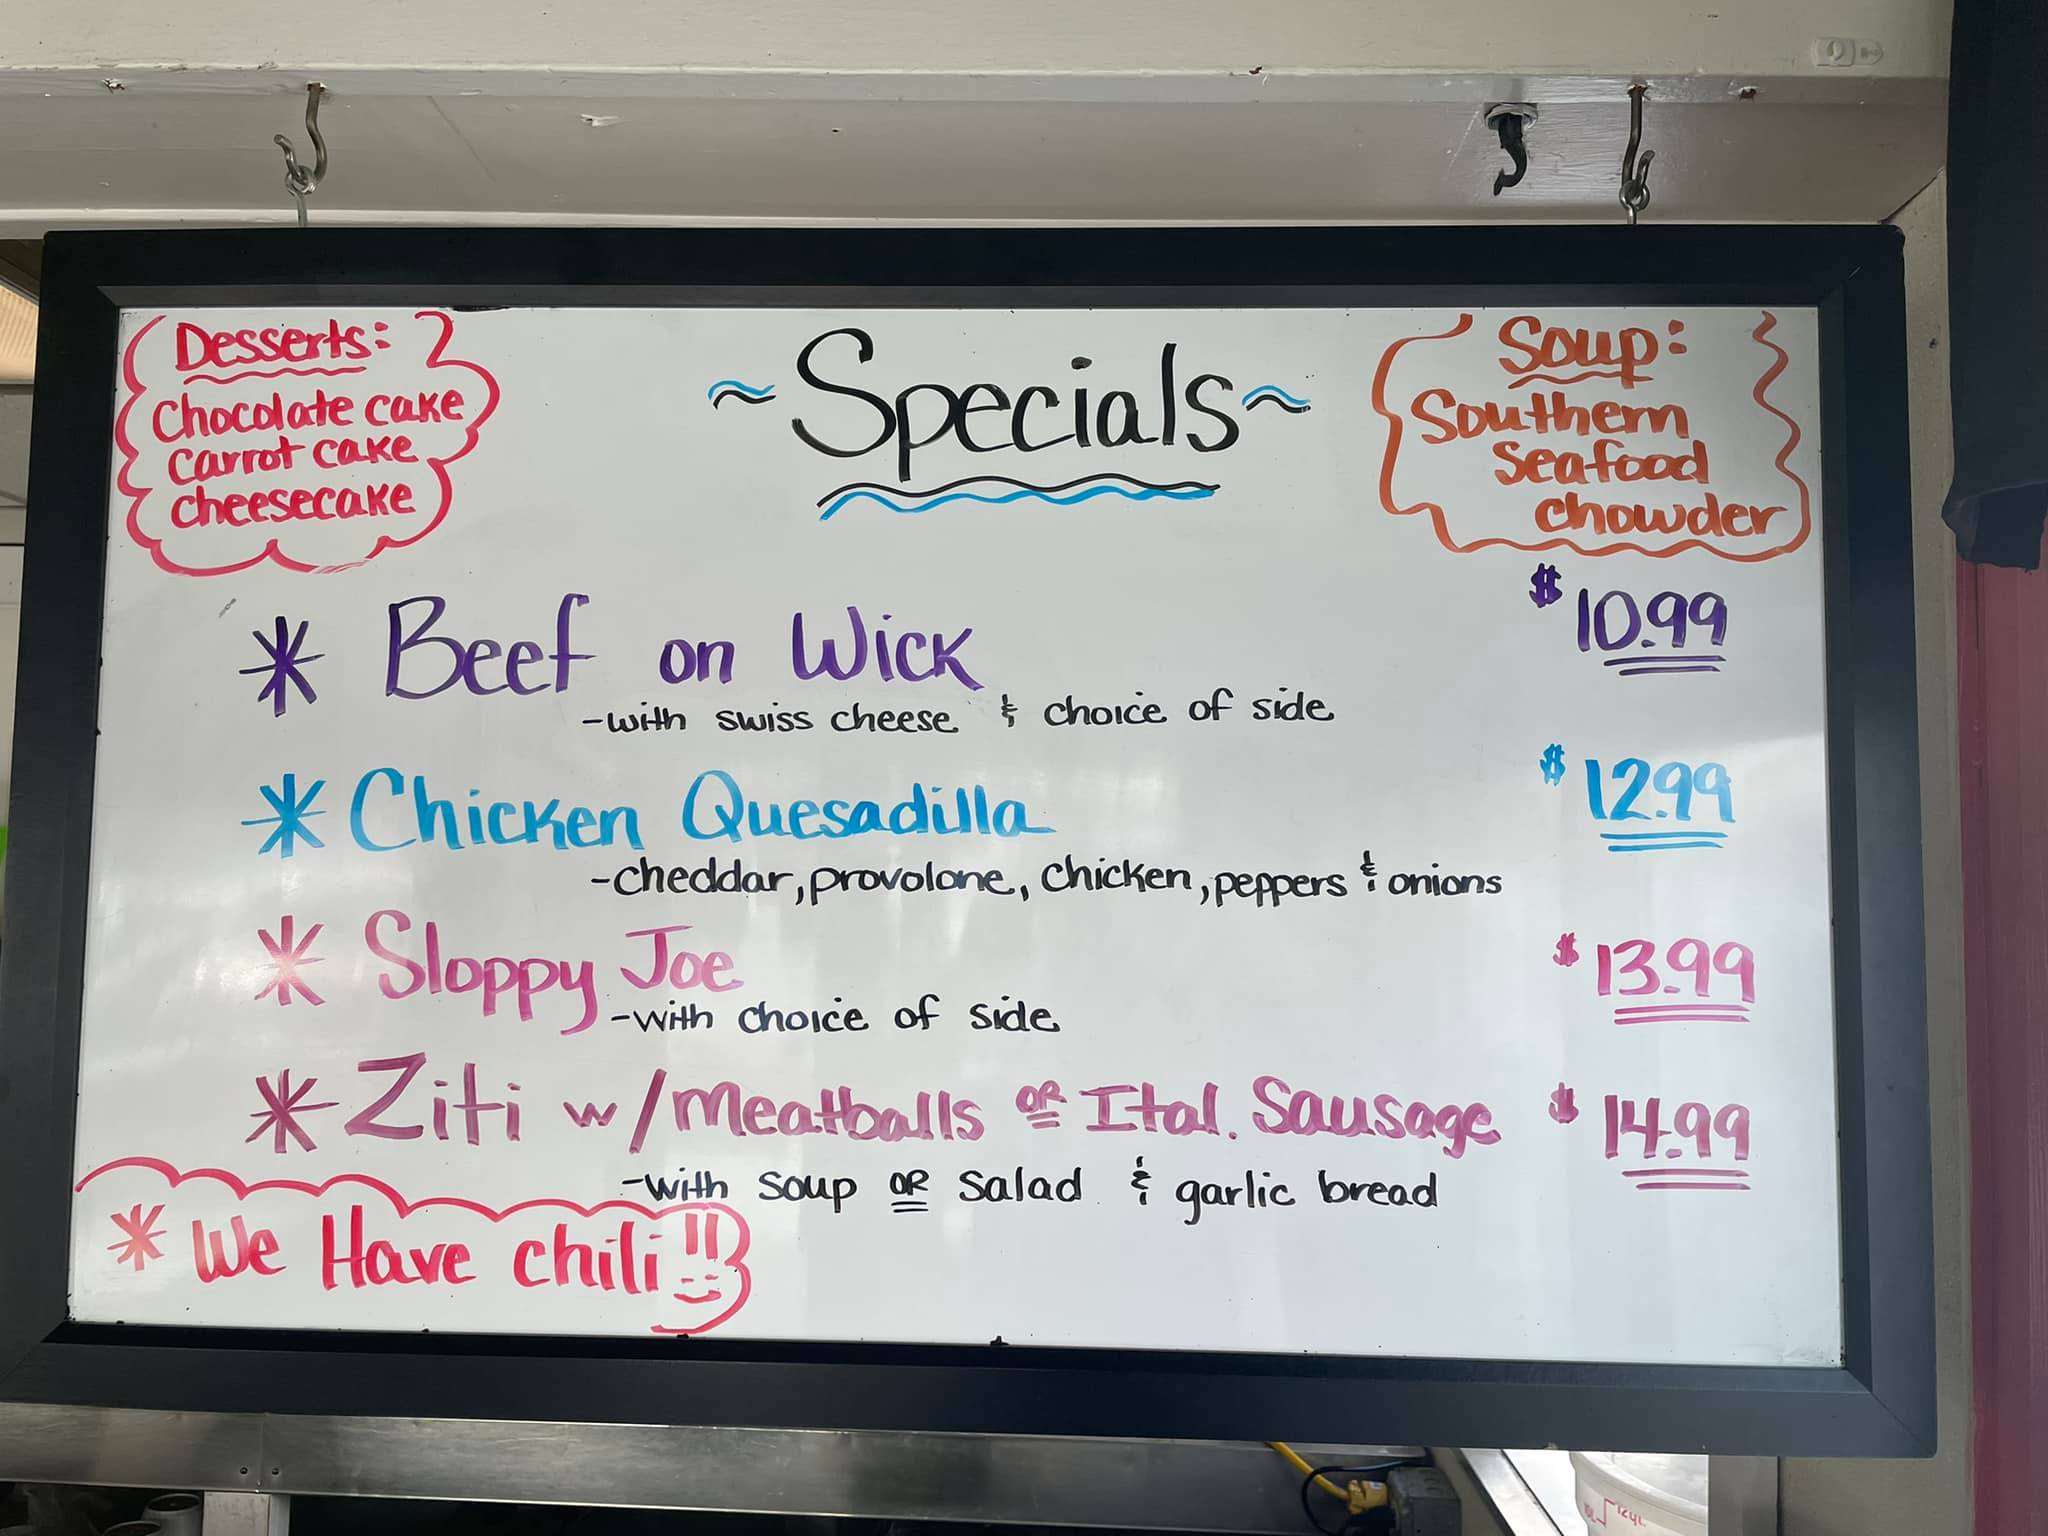 Desserts:
Chocolate cake
carrot cake
cheesecake
~Specials~
Soup:
Southern
Seafood
chowder
* Beef on Wick $10.99
-with swiss cheese & choice of side
* Chicken Quesadilla $12.99
-cheddar, provolone, chicken, peppers & onions
* Sloppy Joe $13.99
-with choice of side
* Ziti w/meatballs OR Ital. Sausage $14.99
-with soup OR salad & garlic bread
* We Have chili!!